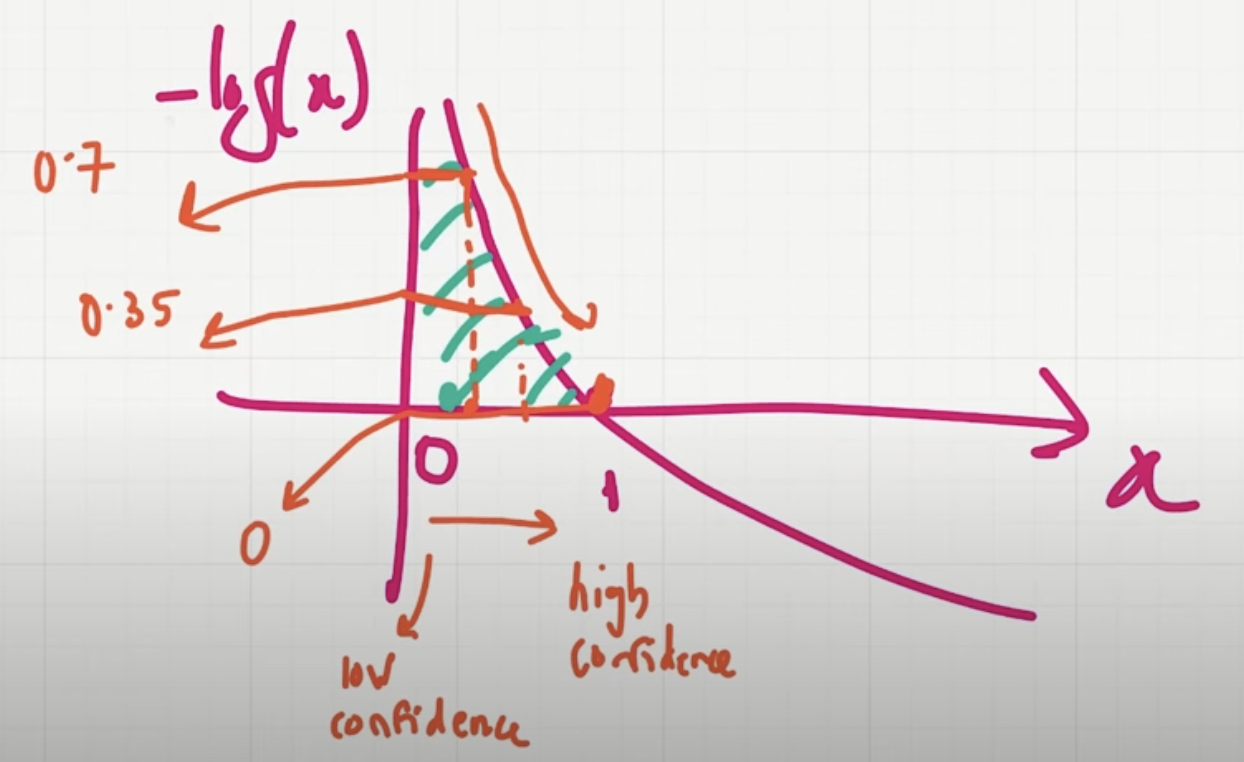 -log(x)
0.7
0.35
0
1
x
0
high
confidence
low
confidence